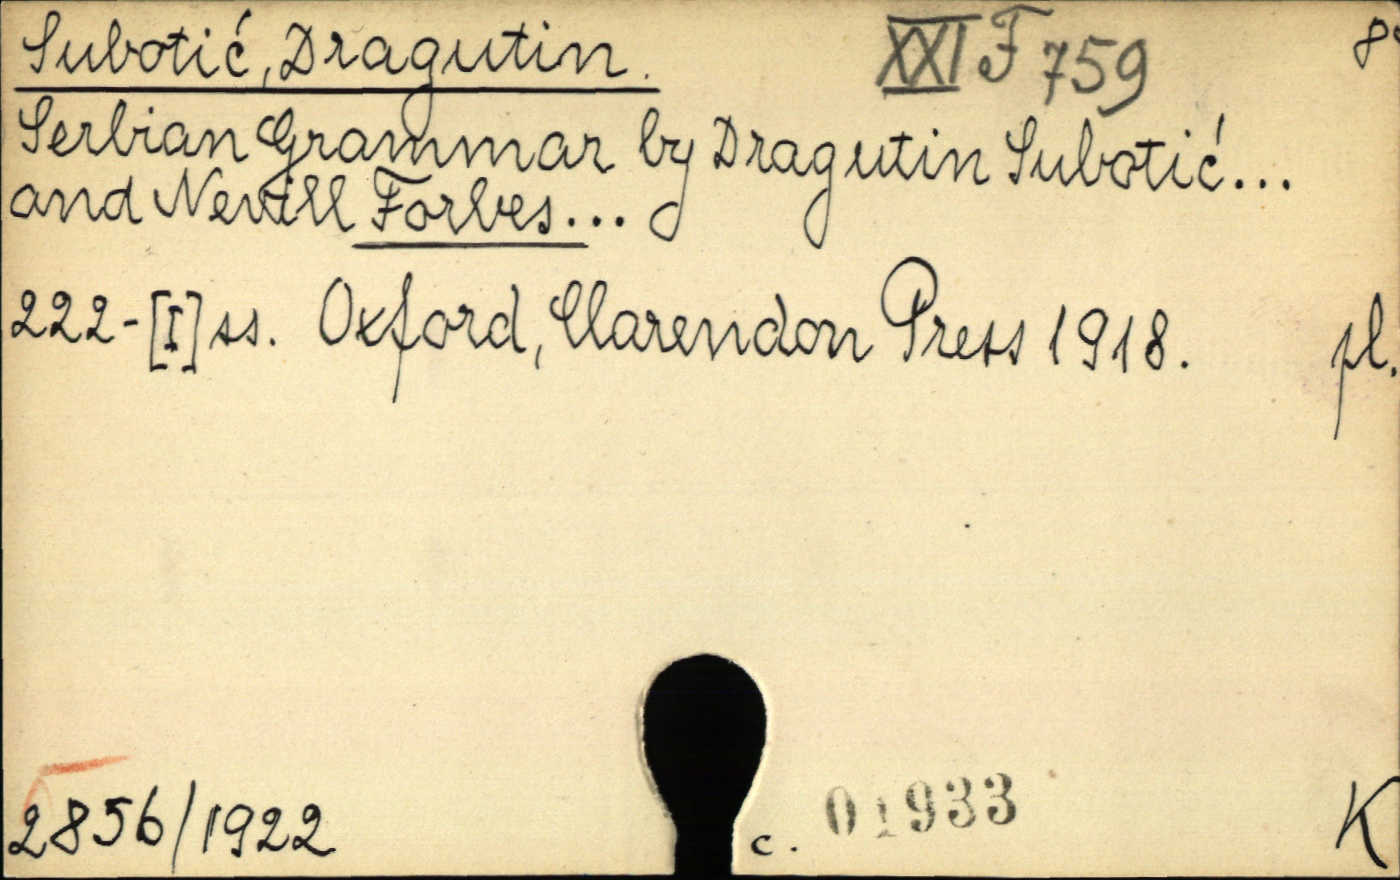 Subotić, Dragutin.
XXI F 759
8°
Serbian Grammar by Dragutin Subotić...
and Nevill Forbes...
222-[I] ss. Oxford, Clarendon Press 1918. pl.
2856/1922
c. 01933
K